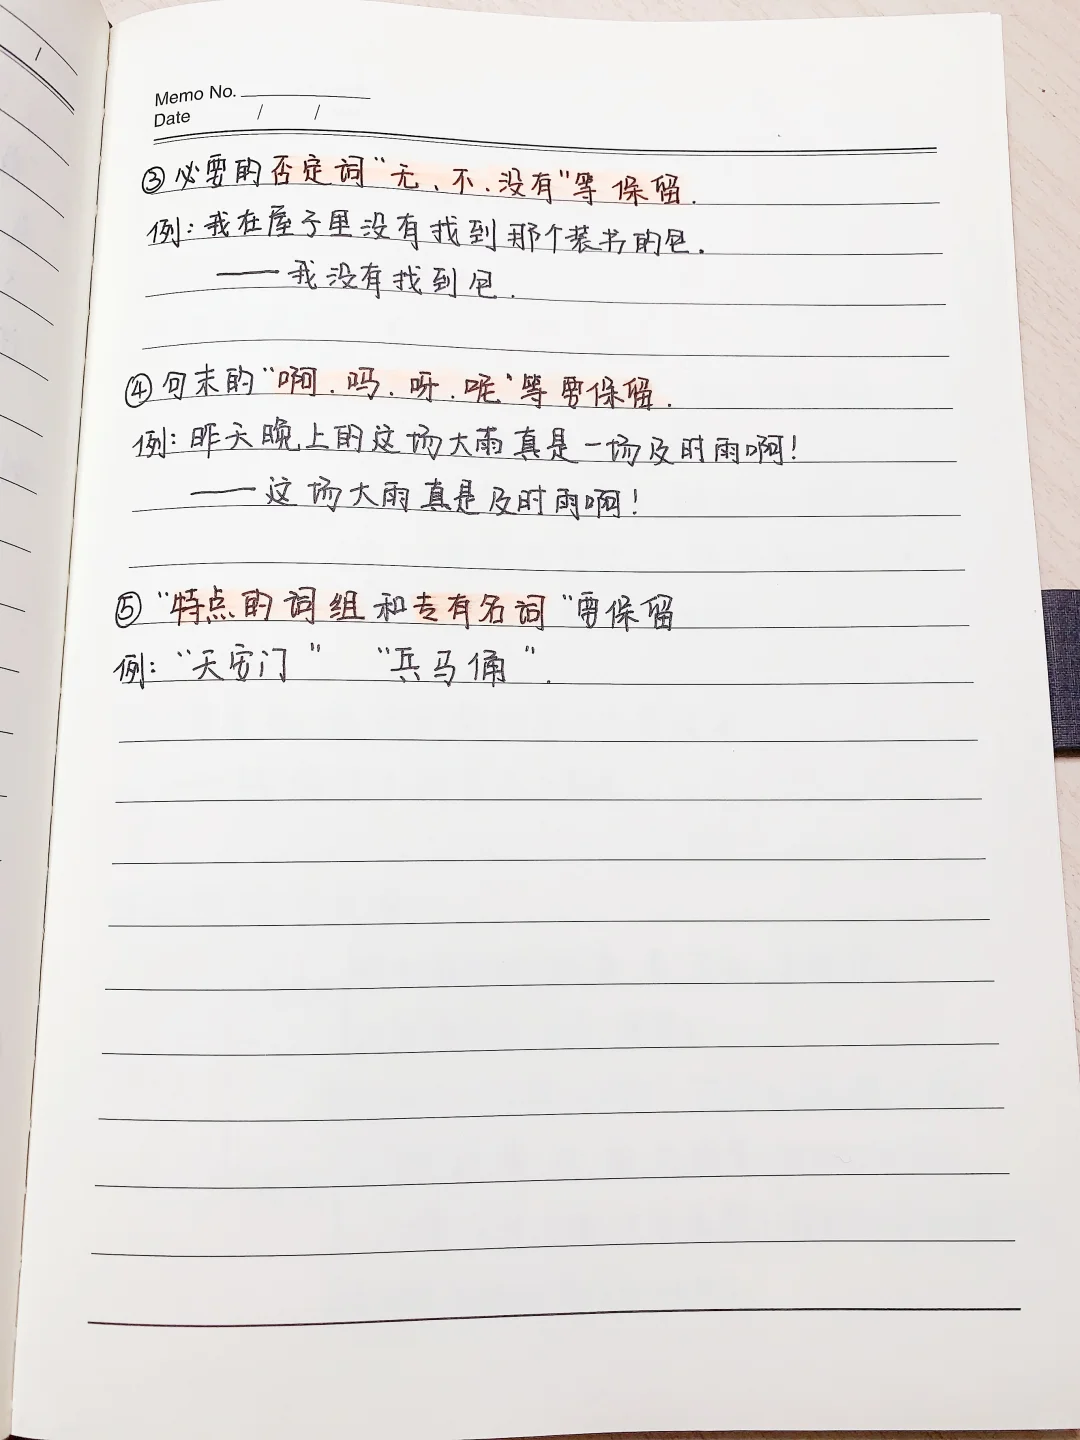 Memo No.
Date / /
③必要的否定词“无、不、没有”等保留.
例:我在屋子里没有找到那个装书的包.
——我没有找到包.
④句末的“啊.吗.呀.呢”等要保留.
例:昨天晚上的这场大雨真是一场及时雨啊!
——这场大雨真是及时雨啊!
⑤“特点的词组和专有名词“要保留
例:“天安门” “兵马俑”.